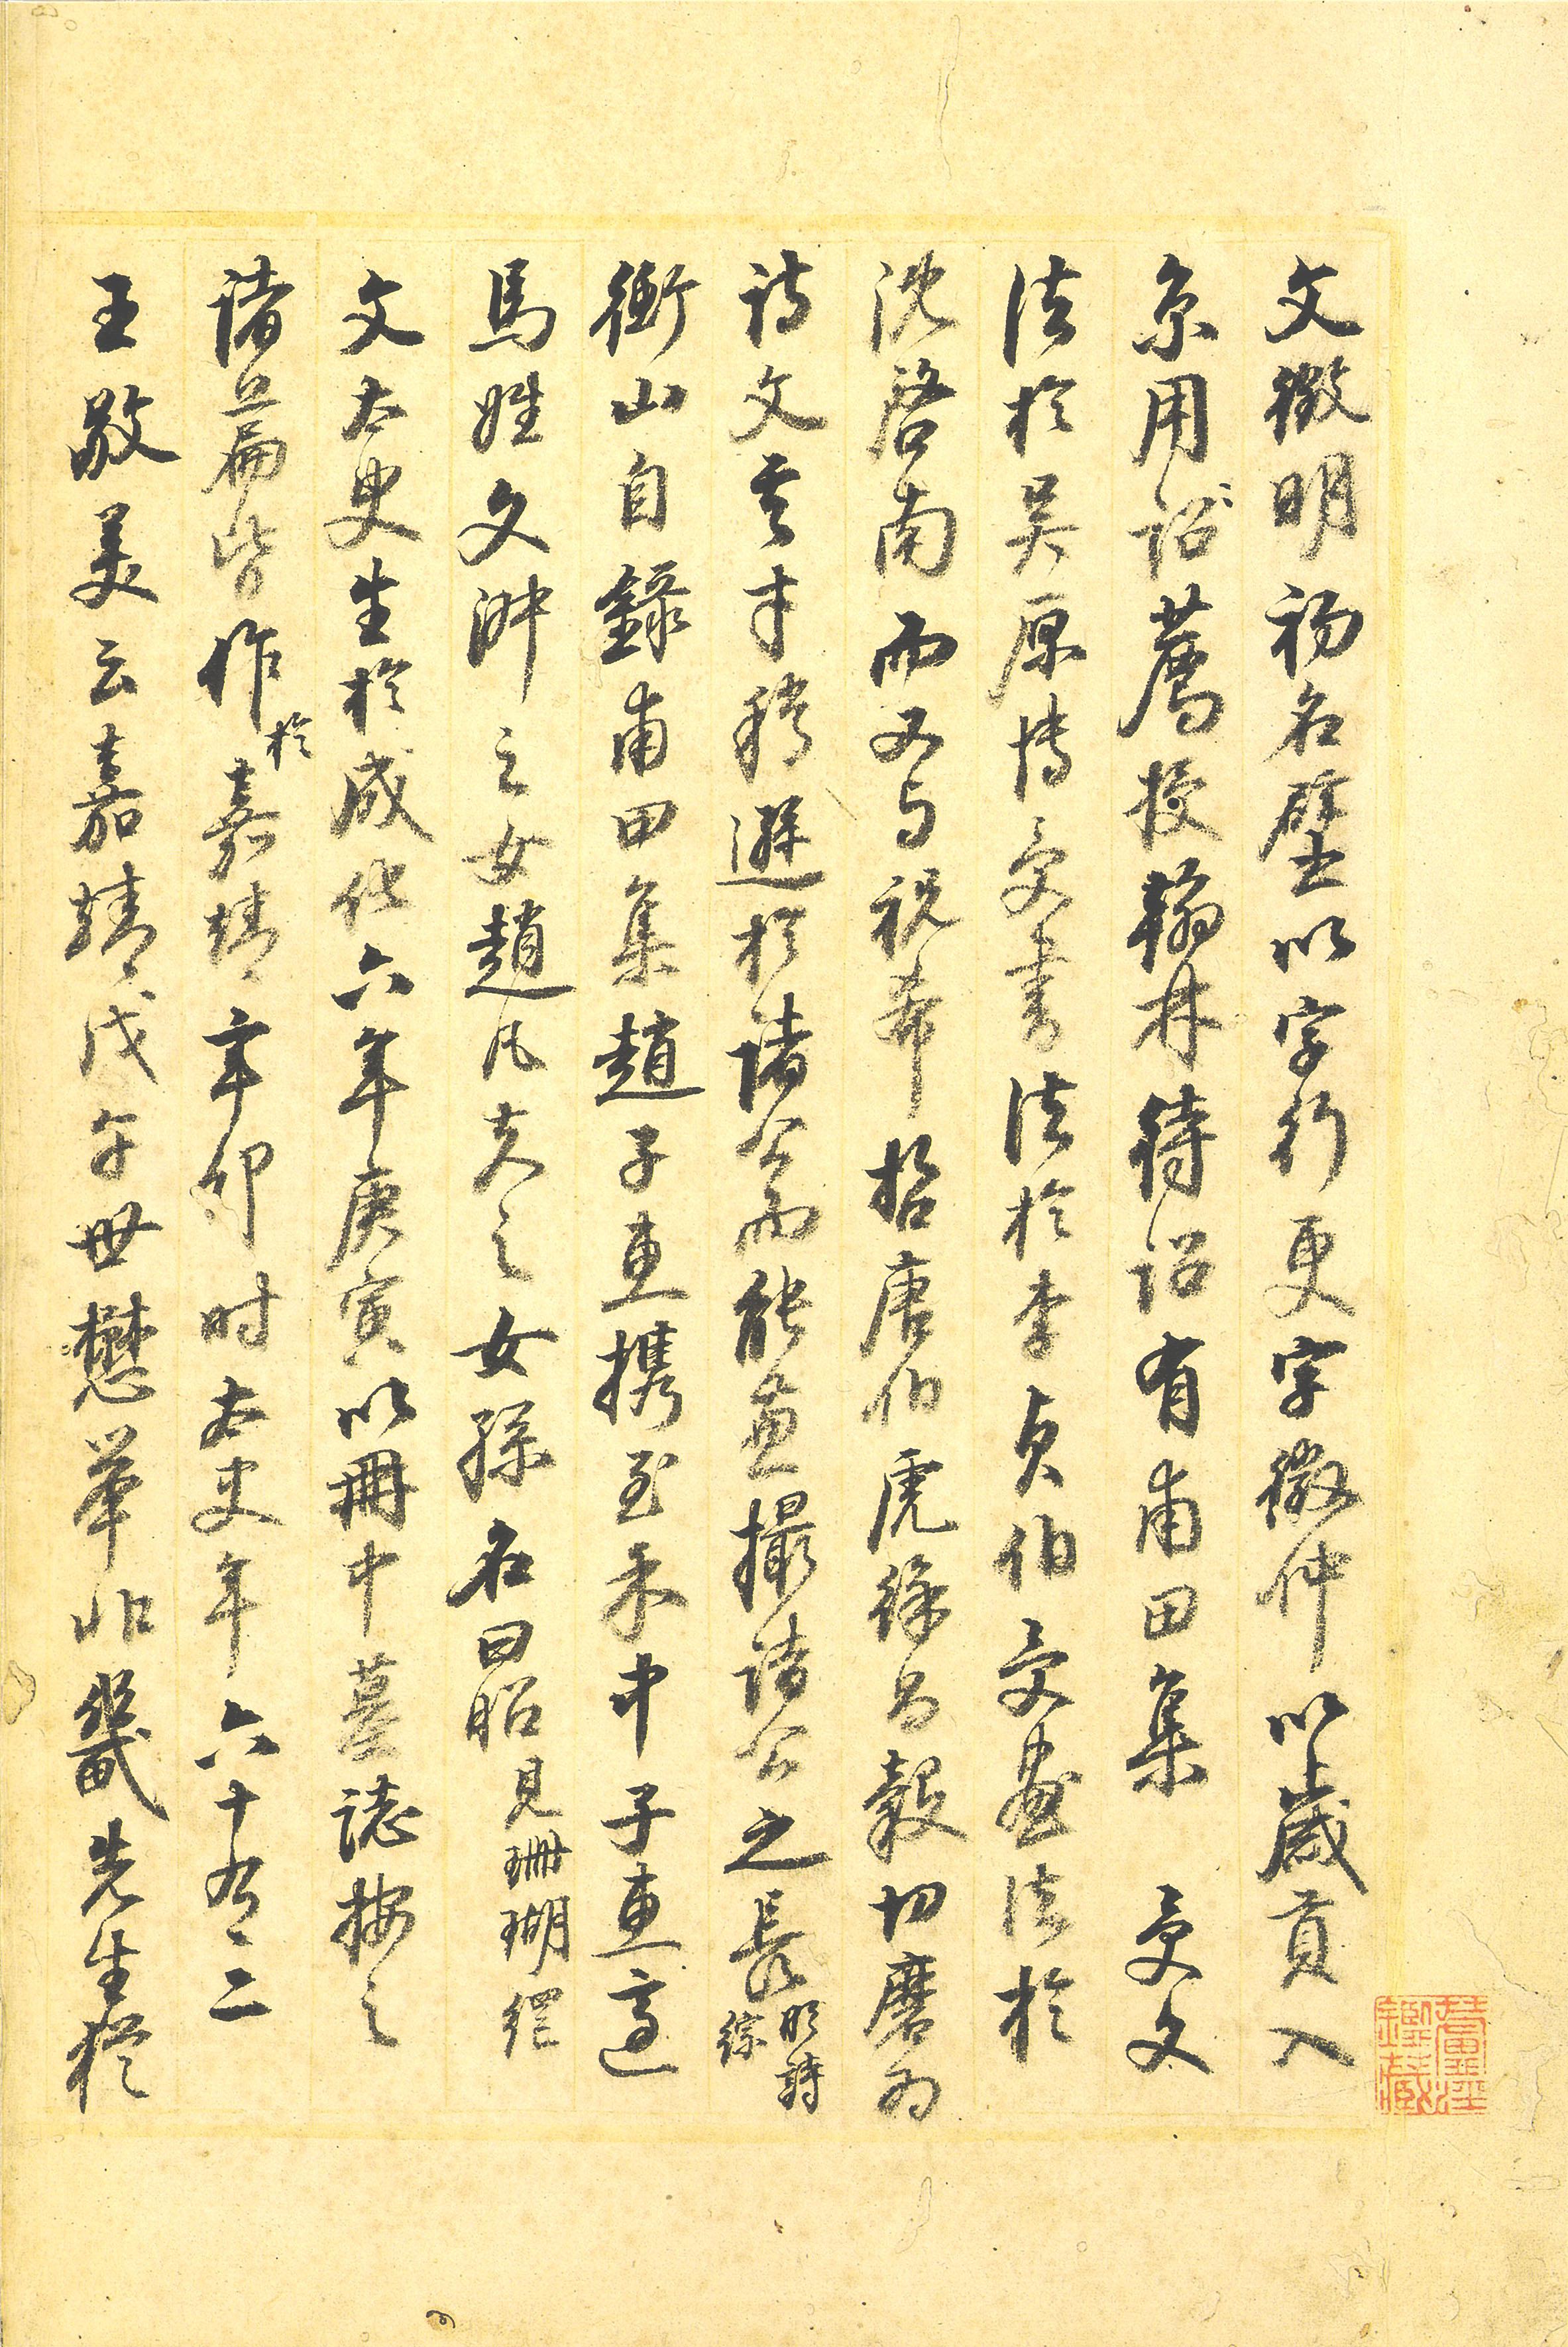 文徵明初名壁以字行更字徵仲以歲貢入
京用諸薦授翰林待詔有甫田集　受文
法於吳原博受書法於李貞伯受畫法於
沈啓南而又与祝希哲唐伯虎徐昌穀切磨為
詩文其才稍遜於諸公而能兼撮諸公之長明詩綜
衡山自錄甫田集趙子惠携至禾中子惠適
馬姓文淵之女趙凡夫之女孫名曰昭見珊瑚網
文太史生於成化六年庚寅以冊中墓誌按之
諸篇皆作於嘉靖辛卯时太史年六十有二
王敬美云嘉靖戊午世懋舉北畿先生猶